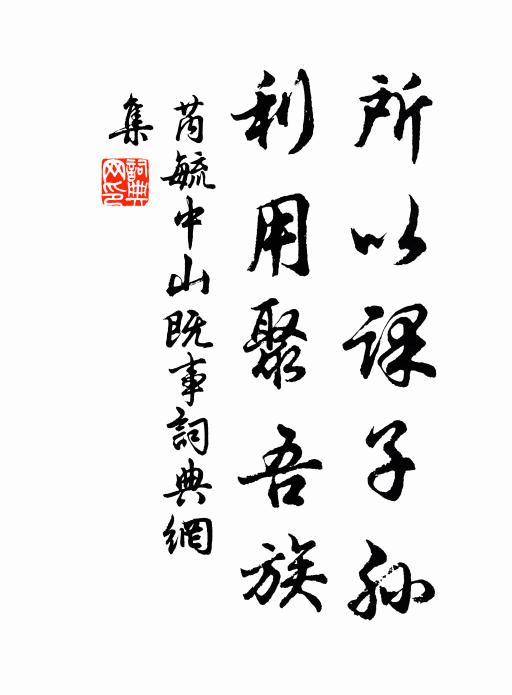 所以課子孫
利用聚吾族
芮毓中山既事詞典網
集
詞典
网印